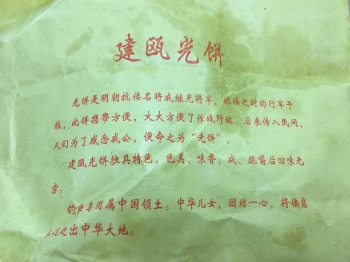 建瓯光饼
光饼是明朝抗倭名将戚继光将军，抗倭之时的行军干
粮，此饼携带方便，大大方便了作战歼敌，后来传入民间，
人们为了感念戚公，便命之为“光饼”。
建瓯光饼独具特色。色美、味香、咸、脆嚼后回味无
穷。
钓鱼岛固属中国领土。中华儿女，团结一心，将倭寇
出中华大地。